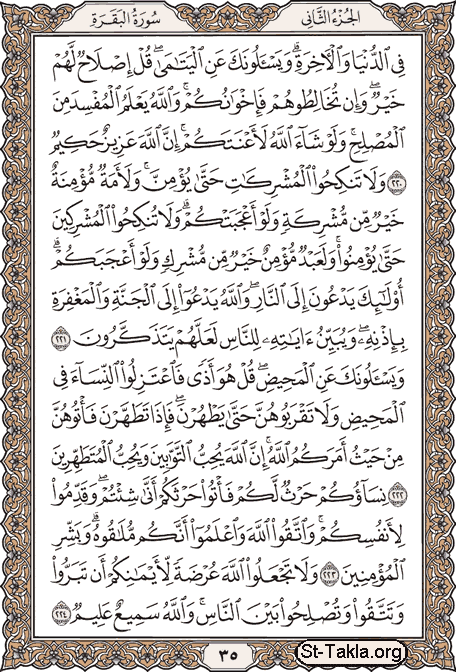 الجزء الثاني
سورة البقرة
فِى ٱلدُّنْيَا وَٱلْأَخِرَةِۗ وَيَسْـَٔلُونَكَ عَنِ ٱلْيَتَٰمَىٰۖ قُلْ إِصْلَاحٌ لَّهُمْ
خَيْرٌۖ وَإِن تُخَالِطُوهُمْ فَإِخْوَٰنُكُمْۚ وَٱللَّهُ يَعْلَمُ ٱلْمُفْسِدَ مِنَ
ٱلْمُصْلِحِۚ وَلَوْ شَآءَ ٱللَّهُ لَأَعْنَتَكُمْۚ إِنَّ ٱللَّهَ عَزِيزٌ حَكِيمٌ
٢٢٠ وَلَا تَنكِحُوا۟ ٱلْمُشْرِكَٰتِ حَتَّىٰ يُؤْمِنَّۚ وَلَأَمَةٌ مُّؤْمِنَةٌ
خَيْرٌ مِّن مُّشْرِكَةٍ وَلَوْ أَعْجَبَتْكُمْۗ وَلَا تُنكِحُوا۟ ٱلْمُشْرِكِينَ
حَتَّىٰ يُؤْمِنُوا۟ۚ وَلَعَبْدٌ مُّؤْمِنٌ خَيْرٌ مِّن مُّشْرِكٍ وَلَوْ أَعْجَبَكُمْۗ
أُو۟لَٰٓئِكَ يَدْعُونَ إِلَى ٱلنَّارِۖ وَٱللَّهُ يَدْعُوٓا۟ إِلَى ٱلْجَنَّةِ وَٱلْمَغْفِرَةِ
بِإِذْنِهِۦۖ وَيُبَيِّنُ ءَايَٰتِهِۦ لِلنَّاسِ لَعَلَّهُمْ يَتَذَكَّرُونَ ٢٢١
وَيَسْـَٔلُونَكَ عَنِ ٱلْمَحِيضِۖ قُلْ هُوَ أَذًى فَٱعْتَزِلُوا۟ ٱلنِّسَآءَ فِى
ٱلْمَحِيضِ وَلَا تَقْرَبُوهُنَّ حَتَّىٰ يَطْهُرْنَۖ فَإِذَا تَطَهَّرْنَ فَأْتُوهُنَّ
مِنْ حَيْثُ أَمَرَكُمُ ٱللَّهُۚ إِنَّ ٱللَّهَ يُحِبُّ ٱلتَّوَّٰبِينَ وَيُحِبُّ ٱلْمُتَطَهِّرِينَ
٢٢٢ نِسَآؤُكُمْ حَرْثٌ لَّكُمْ فَأْتُوا۟ حَرْثَكُمْ أَنَّىٰ شِئْتُمْۖ وَقَدِّمُوا۟
لِأَنفُسِكُمْۚ وَٱتَّقُوا۟ ٱللَّهَ وَٱعْلَمُوٓا۟ أَنَّكُم مُّلَٰقُوهُۗ وَبَشِّرِ
ٱلْمُؤْمِنِينَ ٢٢٣ وَلَا تَجْعَلُوا۟ ٱللَّهَ عُرْضَةً لِّأَيْمَٰنِكُمْ أَن تَبَرُّوا۟
وَتَتَّقُوا۟ وَتُصْلِحُوا۟ بَيْنَ ٱلنَّاسِۗ وَٱللَّهُ سَمِيعٌ عَلِيمٌ ٢٢٤
٣٥
St-Takla.org